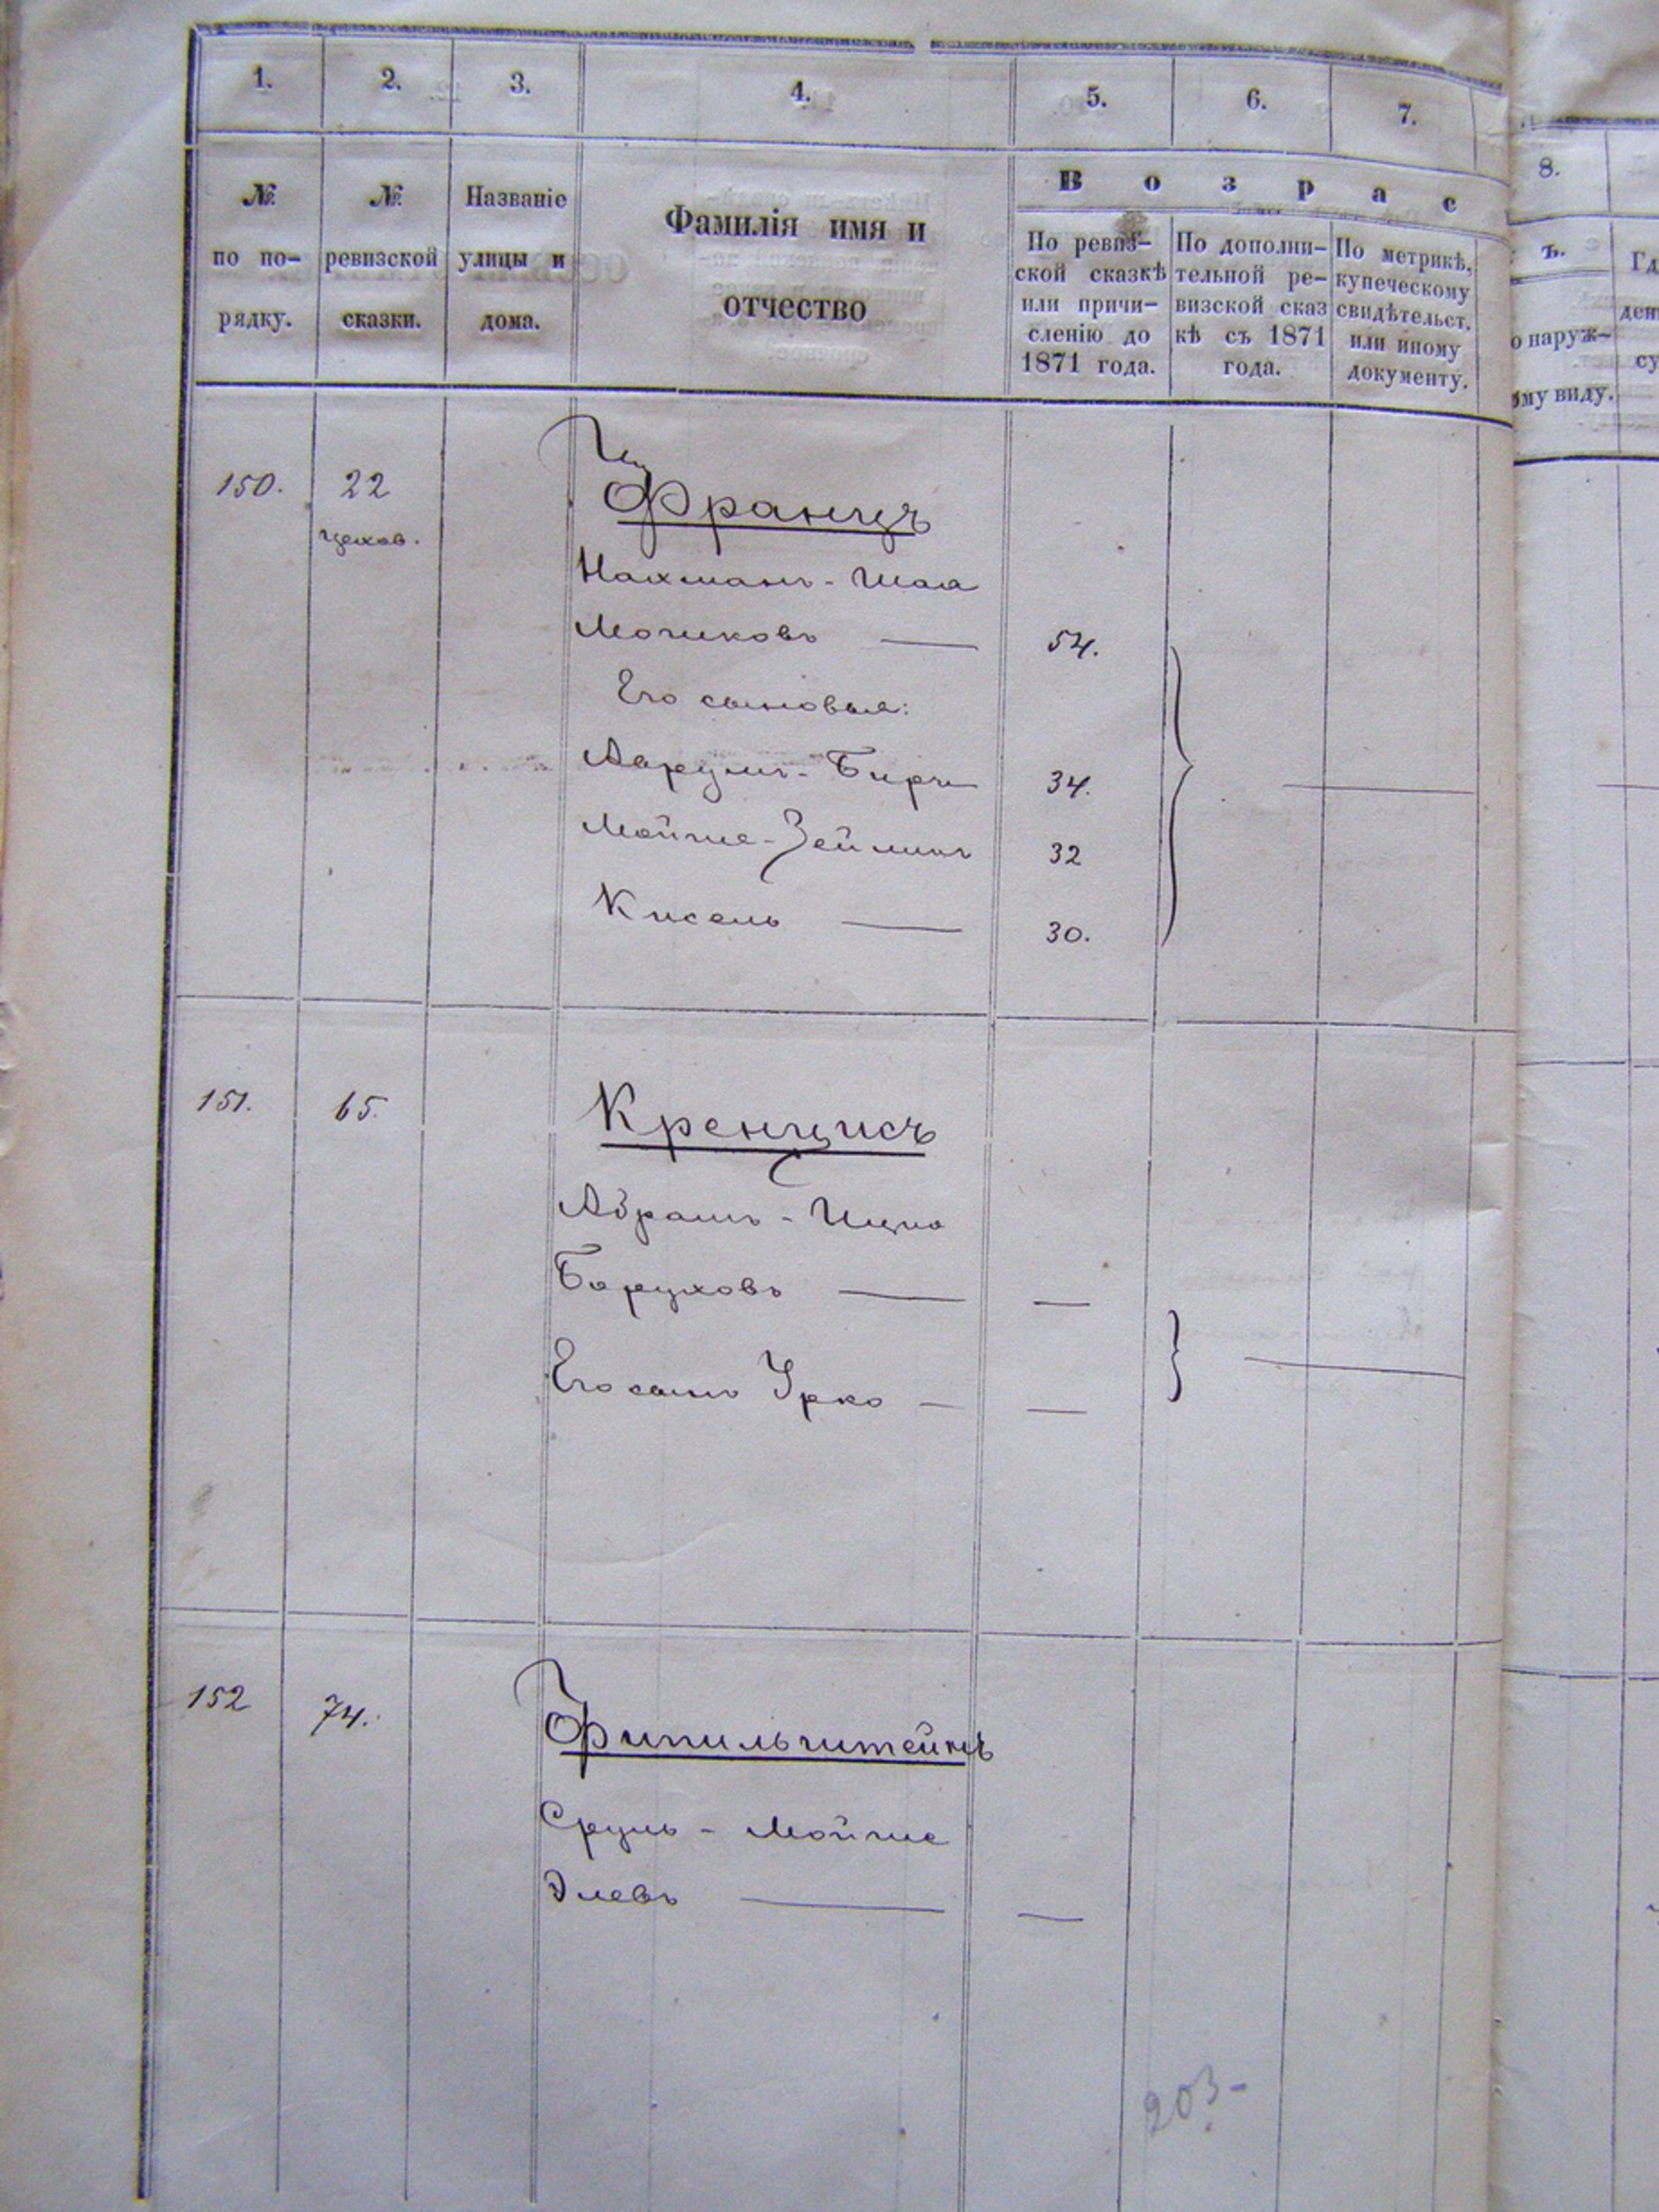 1. 2. 3. 4. 5. 6. 7.
8.
№ по по- рядку.
№ ревизской сказки.
Названіе улицы и дома.
Фамилія имя и отчество
Возрас
По ревиз-
ской сказкѣ
или причи-
сленію до
1871 года.
По дополни-
тельной ре-
визской сказ
кѣ съ 1871
года.
По метрикѣ,
купеческому
свидѣтельст.
или иному
документу.
ъ.
о наруж-
ому виду.
150. 22 Францъ
цехов.
Нахманъ-Шая
Мошковъ — 54.
Его сыновья:
34.
Мойше-Зейликъ 32
Кисель — 30.
151. 65. Кренцисъ
Абрамъ-Ицко
Боруховъ — —
Его сынъ Урко — —
152 74. Фипильштейнъ
Сруль - Мойше
Элевъ — —
203-